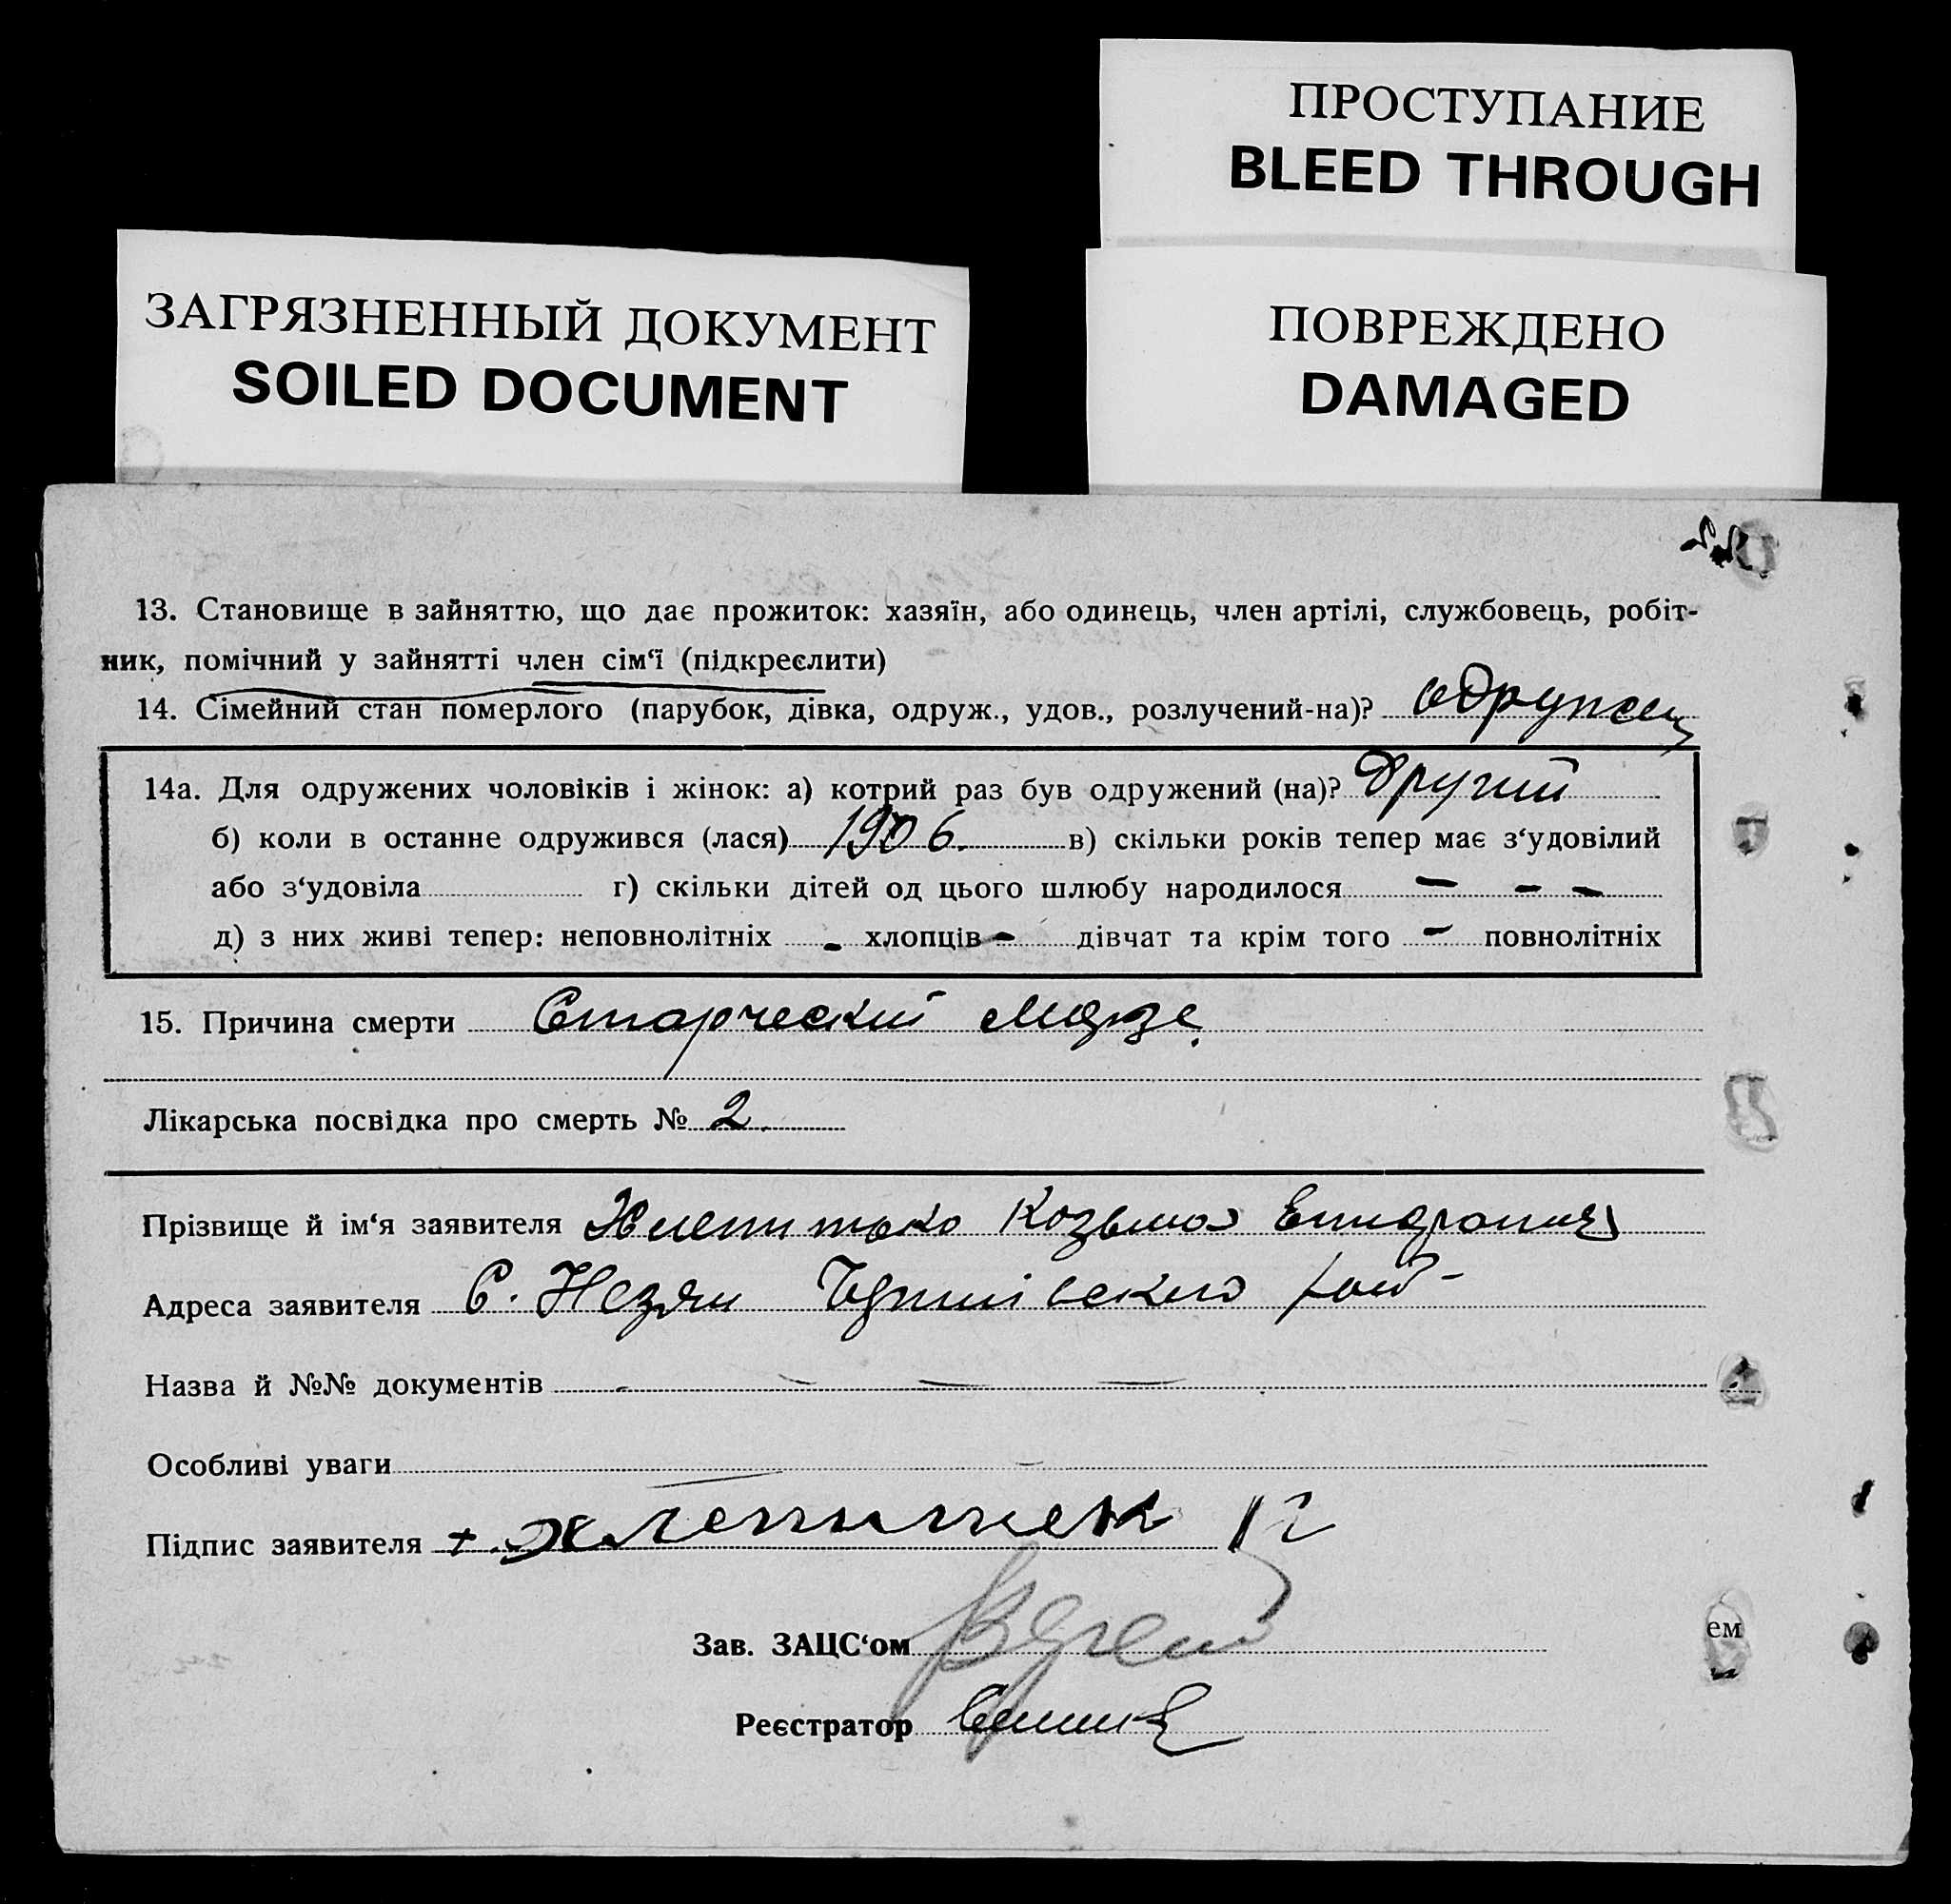 ПРОСТУПАНИЕ
BLEED THROUGH
ЗАГРЯЗНЕННЫЙ ДОКУМЕНТ
SOILED DOCUMENT
ПОВРЕЖДЕНО
DAMAGED
13. Становище в зайняттю, що дає прожиток: хазяїн, або одинець, член артілі, службовець, робіт-
ник, помічний у зайнятті член сім‘ї (підкреслити)
14. Сімейний стан померлого (парубок, дівка, одруж., удов., розлучений-на)?
14а. Для одружених чоловіків і жінок: а) котрий раз був одружений (на)? Другий
б) коли в останне одружився (лася) 1906. в) скільки років тепер має з‘удовілий
або з‘удовіла г) скільки дітей од цього шлюбу народилося — — —
д) з них живі тепер: неповнолітніх - хлопців - дівчат та крім того - повнолітніх
15. Причина смерти Старческий
Лікарська посвідка про смерть № 2.
Прізвище й ім‘я заявителя Козьма
Адреса заявителя С.
Назва й №№ документів - — — —
Особливі уваги
Підпис заявителя +
Зав. ЗАЦС‘ом
ем
Реєстратор